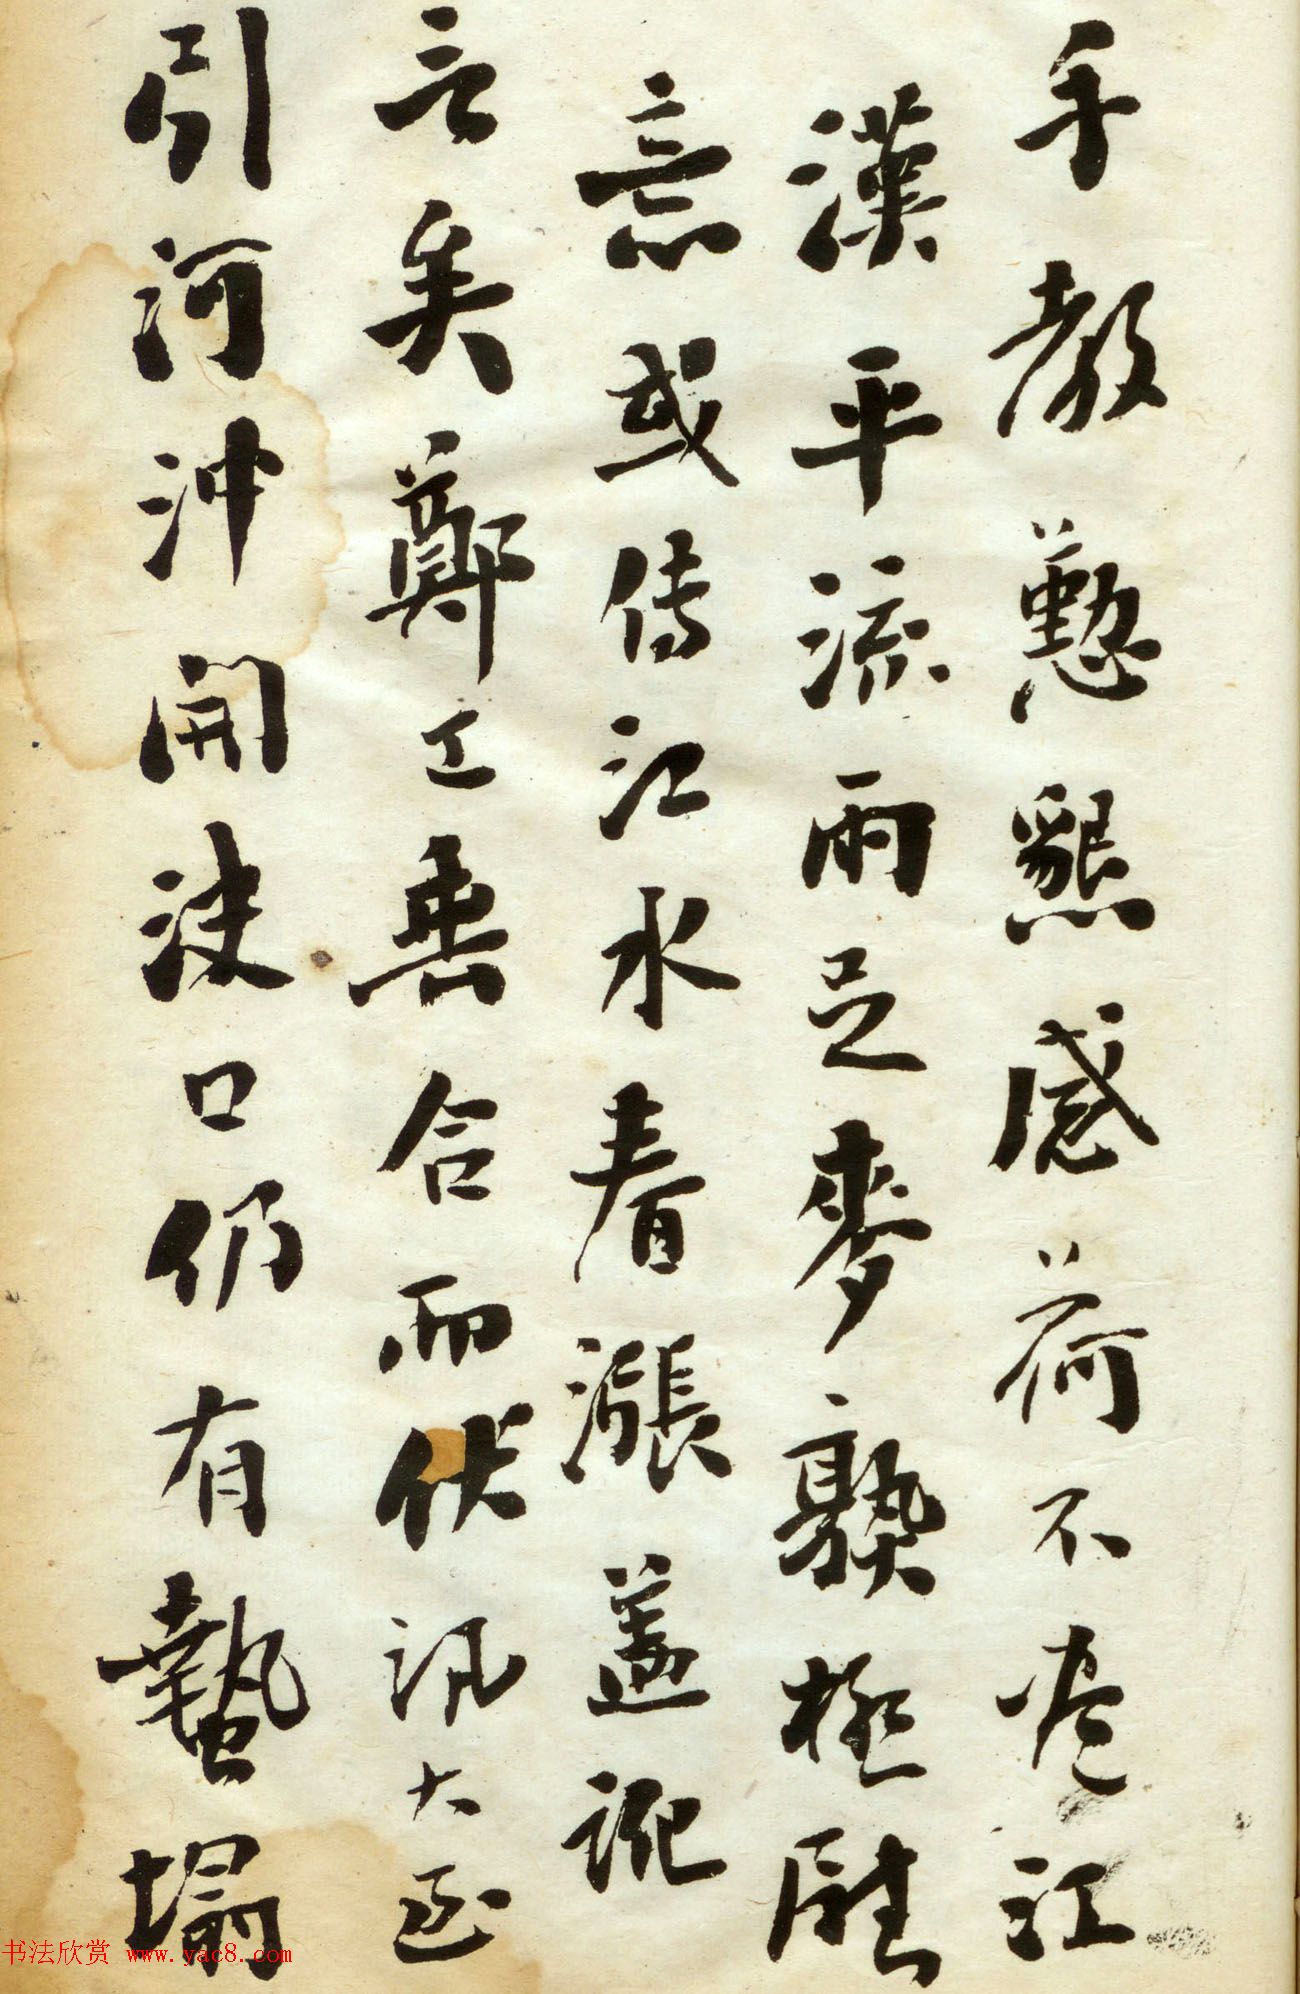 手教懃懇感荷不盡江
漢平流雨足麥熟極
意或傳江水春漲蓋訛
言矣鄭工垂合而伏汛大至
引河沖開決口仍有蟄塌
书法欣赏 www.yac8.com